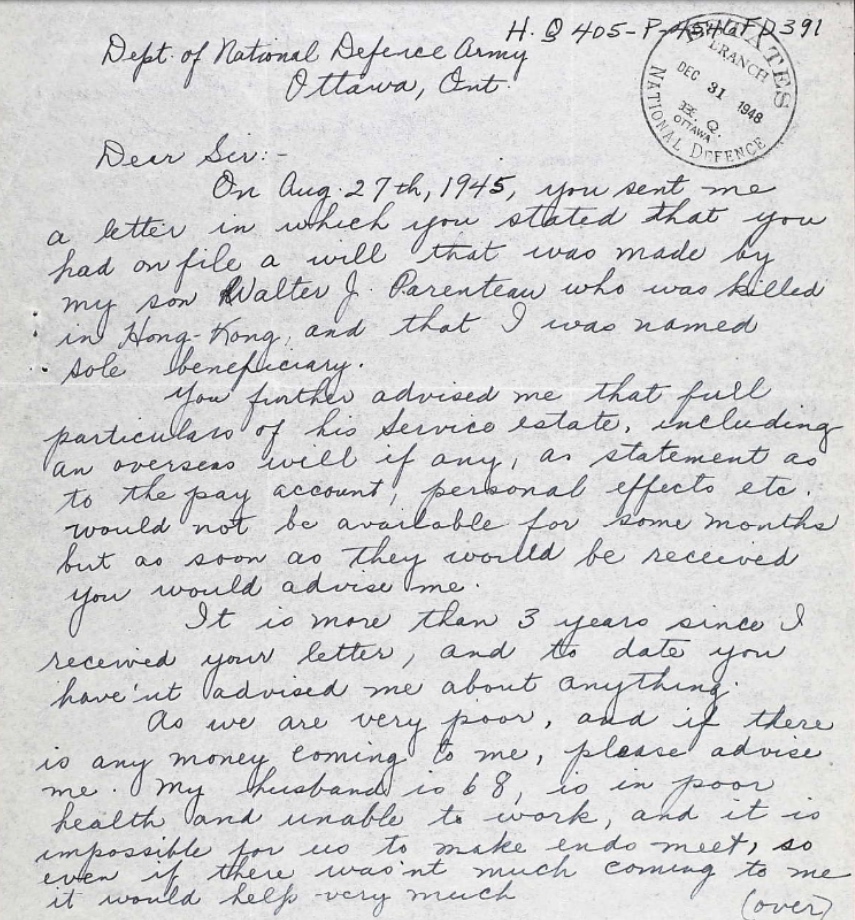 H. Q 405-P-4546 FD 391
Dept. of National Defence Army
Ottawa, Ont.
ESTATES
BRANCH
DEC 31 1948
Q.
OTTAWA
NATIONAL DEFENCE
Dear Sir:-
On Aug. 27th, 1945, you sent me
a letter in which you stated that you
had on file a will that was made by
my son Walter J. Parenteau who was killed
in Hong-Kong, and that I was named
sole beneficiary.
You further advised me that full
particulars of his Service estate, including
an overseas will if any, as statement as
to the pay account, personal effects etc.
would not be available for some months
but as soon as they would be received
you would advise me.
It is more than 3 years since I
received your letter, and to date you
have'nt advised me about anything.
As we are very poor, and if there
is any money coming to me, please advise
me. My husband is 68, is in poor
health and unable to work, and it is
impossible for us to make ends meet, so
even if there was'nt much coming to me
it would help very much
(over)